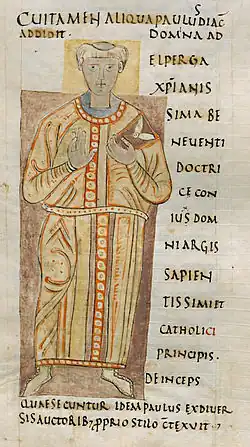 CUI TAMEN ALIQUA PAULUS DIAC
ADDIDIT. DOMNA AD
ELPERGA
XPIANIS
SIMA BE
NEVENTI
DOCTRI
CE CON
IUS DOM
NI ARGIS
SAPIEN
TISSIMI ET
CATHOLICI
PRINCIPIS.
DEINCEPS
QUAE SECUNTUR IDEM PAULUS EX DIVER
SIS AUCTORIB; PPRIO STILO CTEXUIT